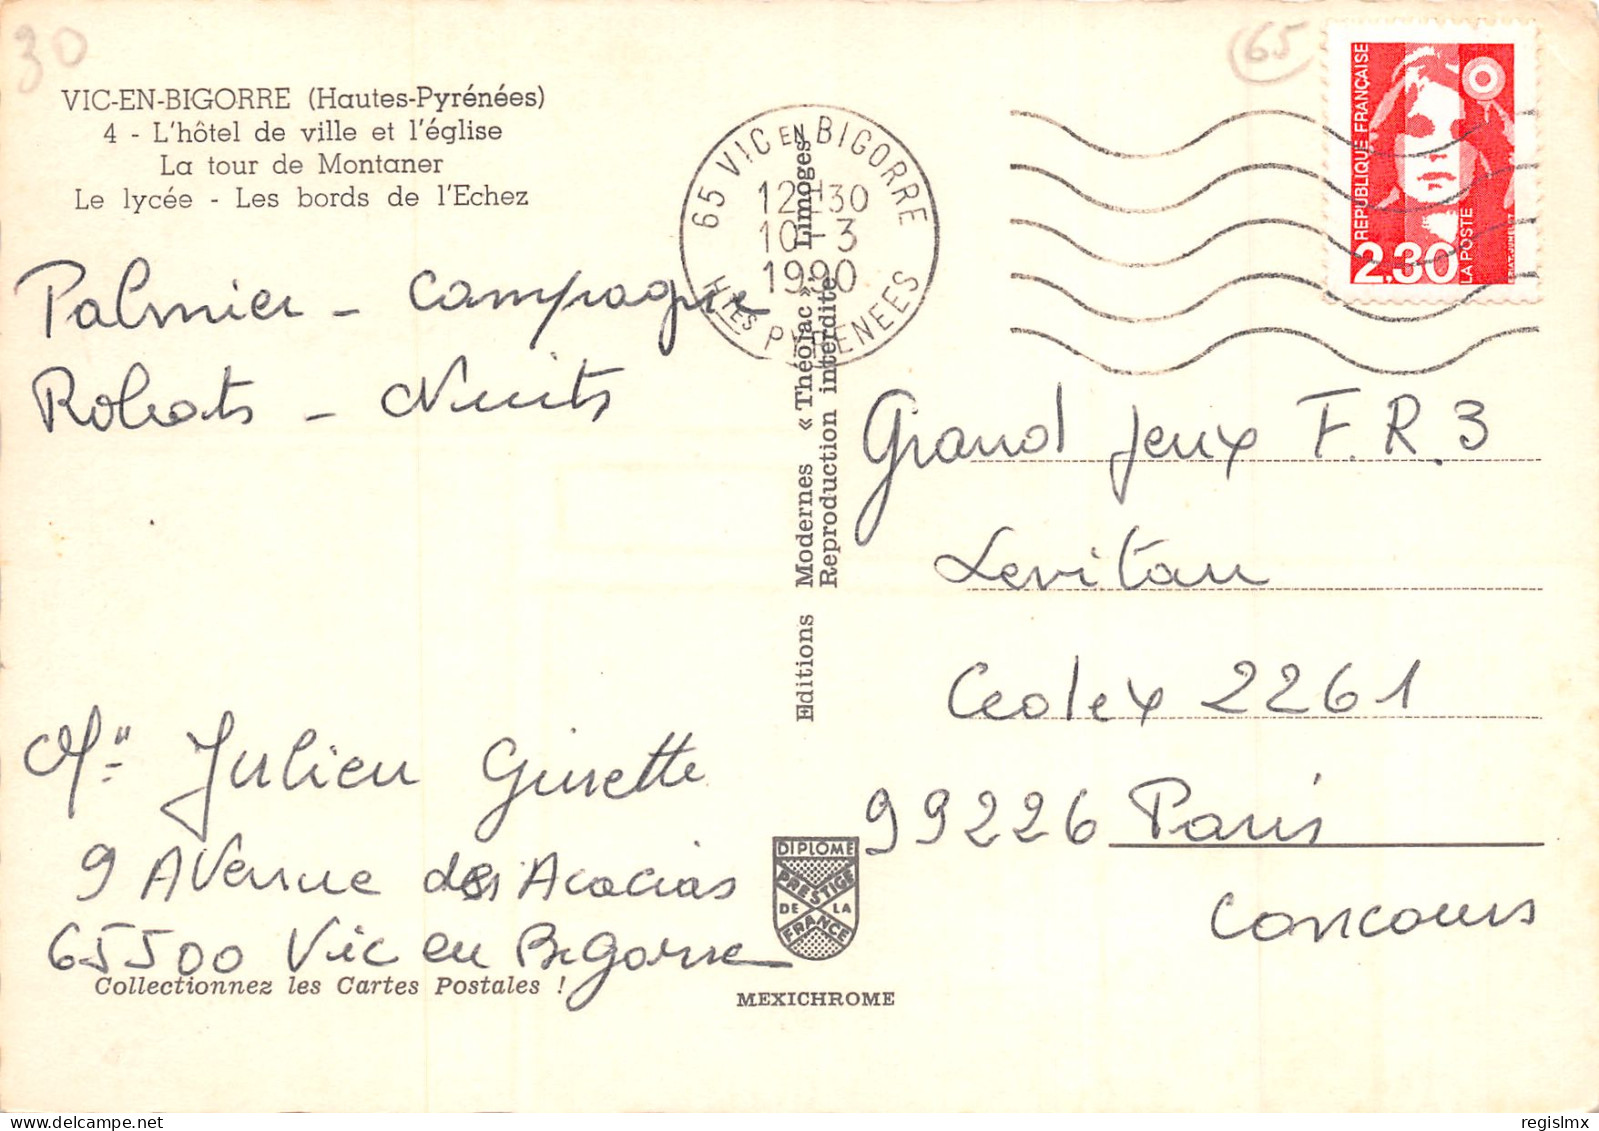 30
65
VIC-EN-BIGORRE (Hautes-Pyrénées)
4 - L'hôtel de ville et l'église
La tour de Montaner
Le lycée - Les bords de l'Echez
65 VIC EN BIGORRE
12H30
10-3
1990
HTES PYRENEES
REPUBLIQUE FRANÇAISE
2,30
LA POSTE
Palmier - Campagne
Robots - Nuits
Editions Modernes « Théojac » Limoges
Reproduction interdite
Grand Jeux F.R.3
Levitan
Cedex 2261
99226 Paris
Concours
Julien Ginette
9 Avenue des Acacias
65500 Vic en Bigorre
Collectionnez les Cartes Postales !
DIPLOME
PRESTIGE
DE LA
FRANCE
MEXICHROME
regislmx